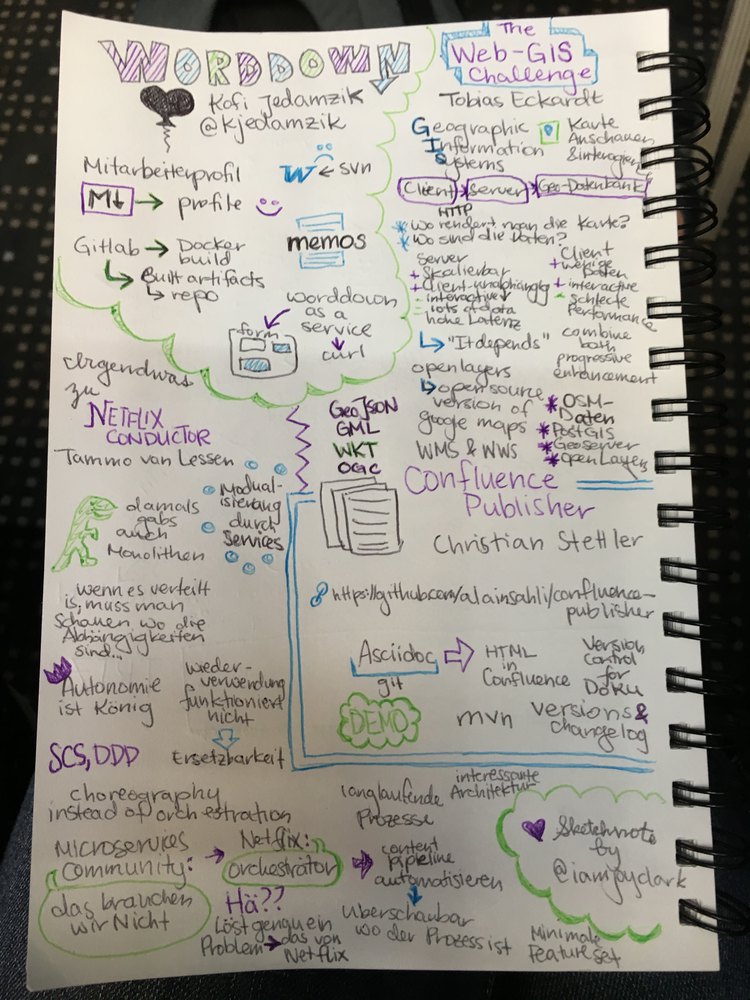 WORDDOWN
Kofi Jedamzik
@kjedamzik
Mitarbeiterprofil
W ← svn
M↓ → profile
memos
Gitlab → Docker
build
↳ Built artifacts
↳ repo
worddown
as a
service
↓
curl
form
The
Web-GIS
Challenge
Tobias Eckardt
Geographic
Information
Systems
Karte
Anschauen
& interagieren
Client
Server
Geo-Datenbank
HTTP
* Wo rendert man die Karte?
* Wo sind die Daten?
Server
+ Skalierbar
+ Client-unabhängig
- interactive
- lots of data
hohe Latenz
Client
+ wenige
Daten
+ interactive
- schlecte
Performance
↳ "It depends"
combine
both
progressive
enhancement
openlayers
↳ open source
version of
google maps
WMS & WWS
* OSM-
Daten
* PostGIS
* Geoserver
* openLayers
GeoJSON
GML
WKT
OGC
Irgendwas
zu
NETFLIX
CONDUCTOR
Tammo van Lessen
damals
gabs
auch
Monolithen
Modual-
isierung
durch
Services
wenn es verteilt
is, muss man
schauen wo die
Abhängigkeiten
sind...
Autonomie
ist König
wieder-
verwendung
funktioniert
nicht
Ersetzbarkeit
SCS, DDD
choreography
instead of orchestration
Microservices
Community:
das brauchen
wir Nicht
→ Netflix:
orchestrator
Hä??
Löst genau ein
Problem → das von
Netflix
langlaufende
Prozesse
interessante
Architektur
content
pipeline
automatisieren
überschaubar
wo der Prozess ist
Minimale
Feature set
Confluence
Publisher
Christian Stettler
https://github.com/alainsahli/confluence-
publisher
Asciidoc
git
HTML
in
Confluence
Version
Control
for
Doku
DEMO
mvn
versions &
changelog
Sketchnote
by
@iamjoyclark